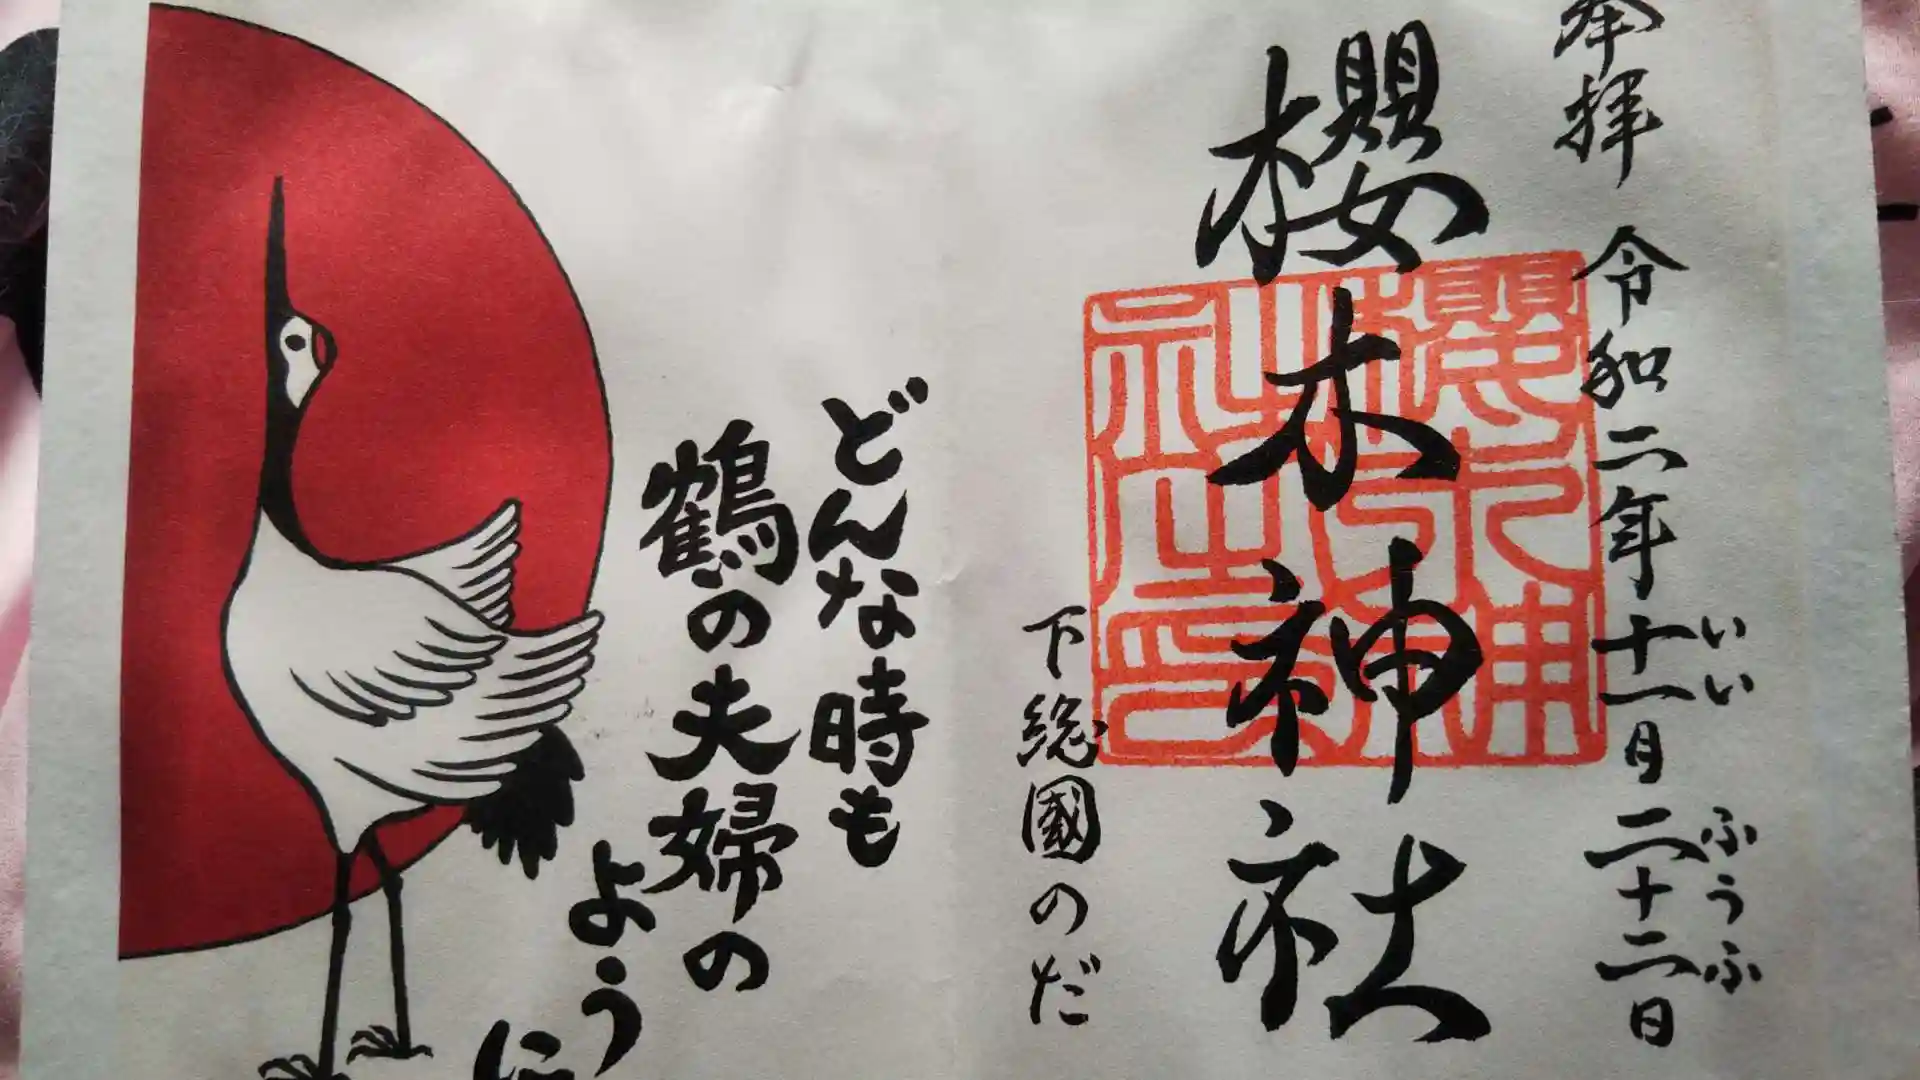 奉拝 令和二年十一月二十二日
いい
ふうふ
櫻木神社
下総國のだ
どんな時も
鶴の夫婦の
ように